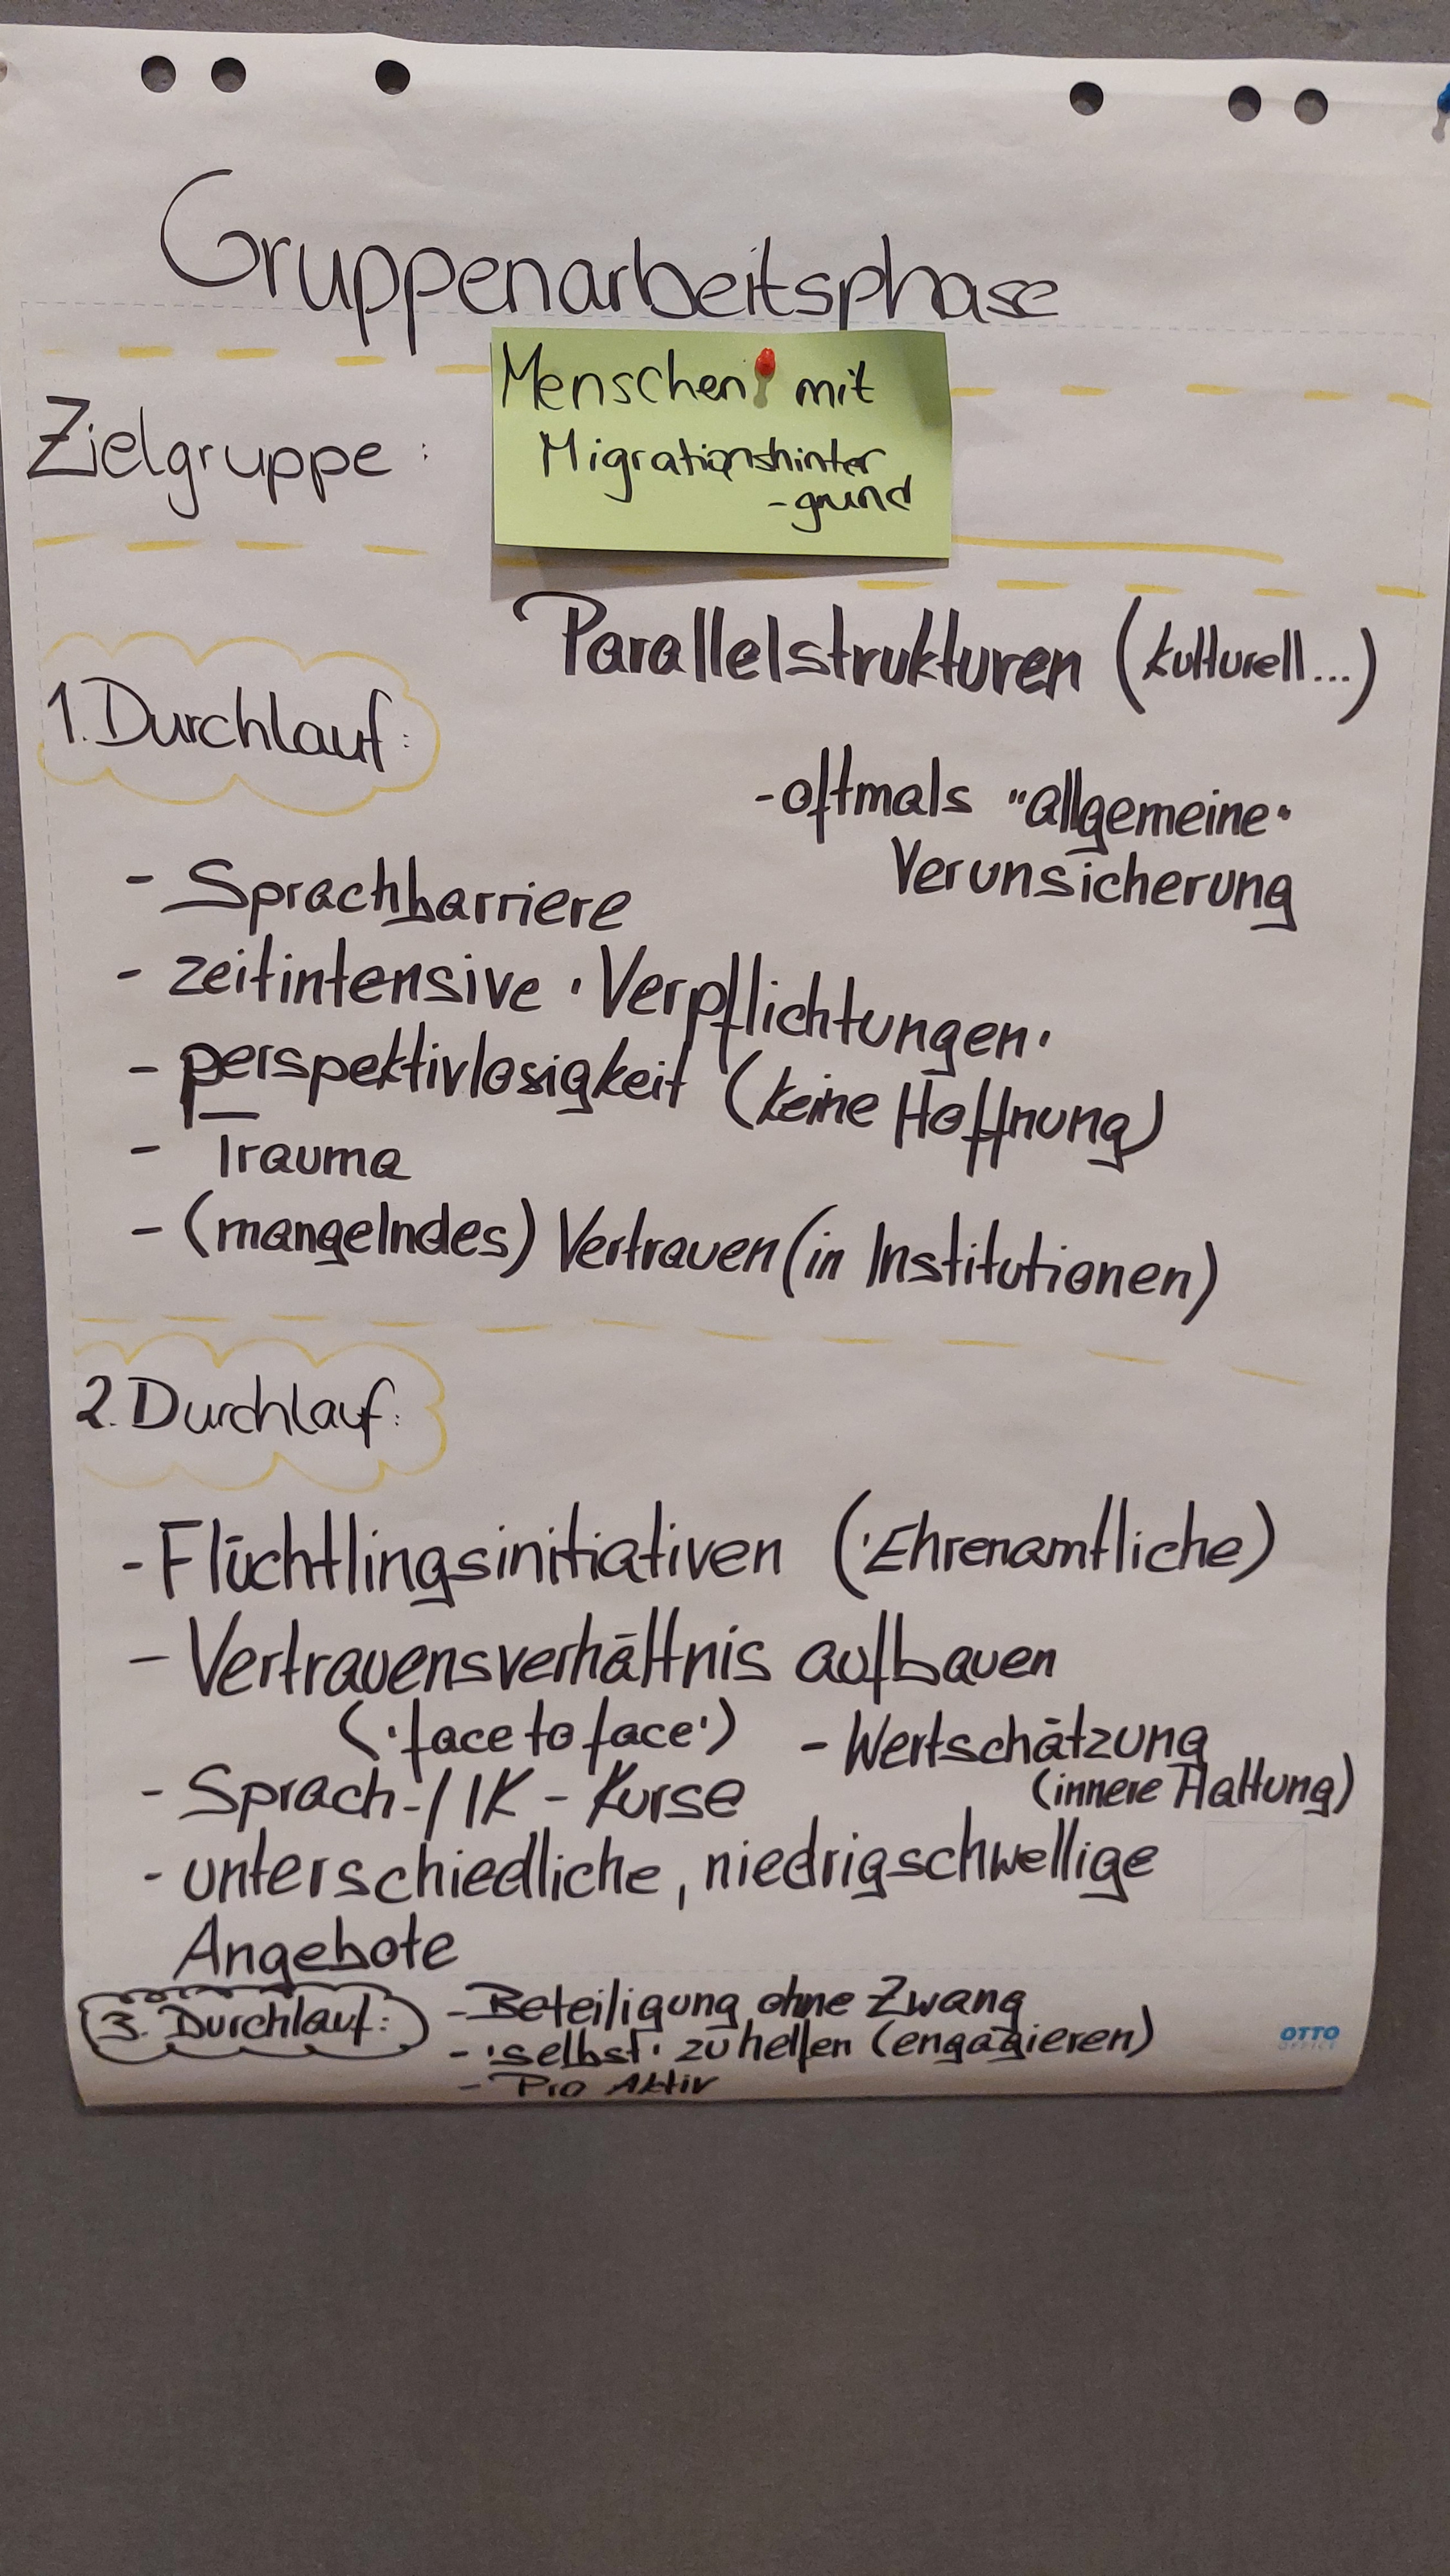 Gruppenarbeitsphase
Zielgruppe:
Menschen mit
Migrationshinter
-grund
Parallelstrukturen (kulturell...)
1. Durchlauf:
- oftmals "allgemeine"
Verunsicherung
- Sprachbarriere
- zeitintensive 'Verpflichtungen'
- perspektivlosigkeit (keine Hoffnung)
- Trauma
- (mangelndes) Vertrauen (in Institutionen)
2. Durchlauf:
- Flüchtlingsinitiativen ('Ehrenamtliche)
- Vertrauensverhältnis aufbauen
('face to face')
- Wertschätzung
(innere Haltung)
- Sprach-/IK-Kurse
- unterschiedliche, niedrigschwellige
Angebote
3. Durchlauf:
- Beteiligung ohne Zwang
- 'selbst' zu helfen (engagieren)
- Pro Aktiv
OTTO
OFFICE